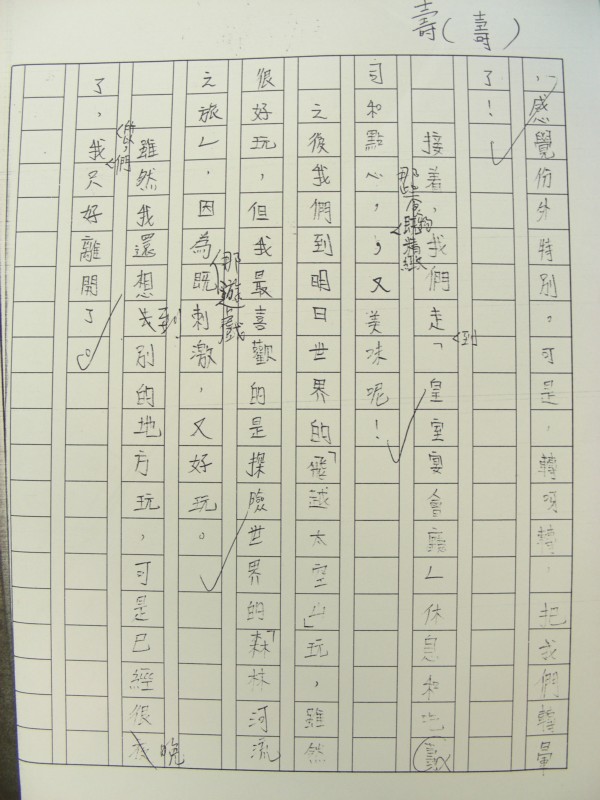 壽(壽)
，感覺份外特別。可是，轉呀轉，把我們轉暈
了！
接着，我們走到「皇室宴會廳」休息和吃壽
司和點心，那些食物既精緻，又美味呢！
之後我們到明日世界的「飛越太空山」玩，雖然
很好玩，但我最喜歡的是探險世界的「森林河流
之旅」，因為那遊戲既刺激，又好玩。
雖然我還想先到別的地方玩，可是已經很夜晚
了，所以，我們只好離開了。